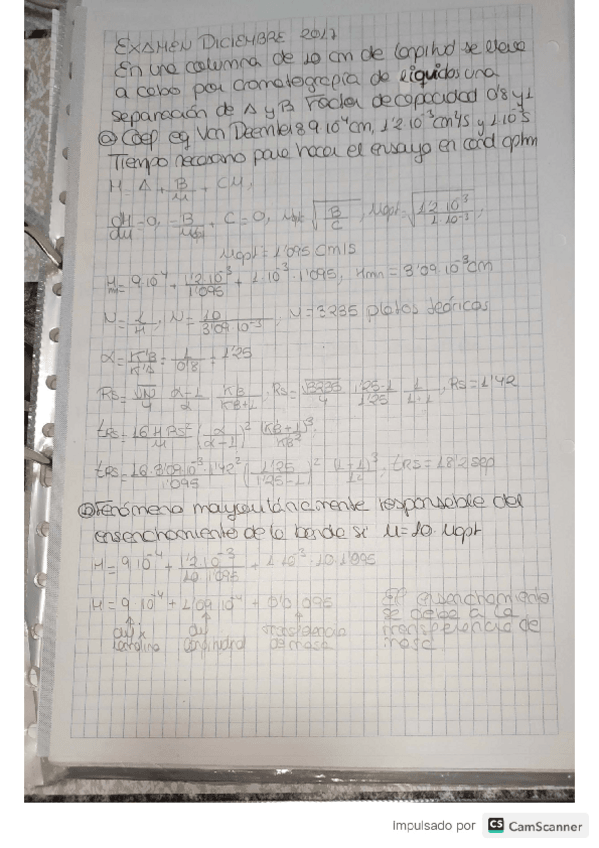 EXAMEN DICIEMBRE 2017
En una columna de 10 cm de longitud se lleva
a cabo por cromatografía de líquidos una
separación de A y B Factor de capacidad 0'8 y 1
a) Coef eq Van Deemter 8 9 10⁻⁴cm, 1'2 10⁻³cm²/s y 1 10⁻³s
Tiempo necesario para hacer el ensayo en cond optim
H = A + B/μ + Cμ,
dH/dμ = 0, -B/μ² + C = 0, μopt √B/C, μopt = √1'2 10⁻³/1·10⁻³,
μopt = 1'095 cm/s
H = 9·10⁻⁴ + 1'2·10⁻³/1'095 + 1·10⁻³·1'095, Hmn = 3'09·10⁻³cm
N = L/H, N = 10/3'09·10⁻³, N = 3235 platos teóricos
α = K'B/K'A = 1/0'8 = 1'25
Rs = √N/4 α-1/α KB/KB+1, Rs = √3235/4 1'25-1/1'25 1/1+1, Rs = 1'42
tRs = 16HRs²/μ (α/α-1)² (KB+1)³/KB²
tRs = 16·3'09·10⁻³·1'42²/1'095 (1'25/1'25-1)² (1+1)³/1², tRs = 18'2 sep
b) Fenómeno mayoritariamente responsable del
ensanchamiento de la banda si μ = 10·μopt
H = 9 10⁻⁴ + 1'2 10⁻³/10 1'095 + 1 10⁻³·10 1'095
H = 9 10⁻⁴ + 1'09 10⁻⁴ + 0'01095
El ensanchamiento
se debe a la
transferencia de
masa
transferencia
de masa
Impulsado por CS CamScanner